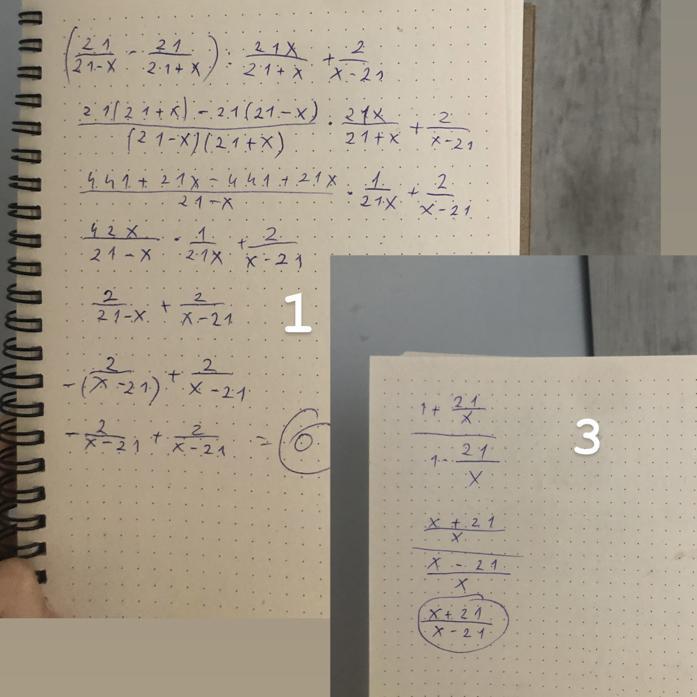 (21/(21-x) - 21/(21+x)) : 21x/(21+x) + 2/(x-21)
(21(21+x) - 21(21-x))/((21-x)(21+x)) : 21x/(21+x) + 2/(x-21)
(441 + 21x - 441 + 21x)/(21-x) · 1/(21x) + 2/(x-21)
42x/(21-x) · 1/(21x) + 2/(x-21)
2/(21-x) + 2/(x-21)
1
-2/(x-21) + 2/(x-21)
-2/(x-21) + 2/(x-21) = 0
(1 + 21/x)/(1 - 21/x)
3
((x+21)/x)/((x-21)/x)
(x+21)/(x-21)